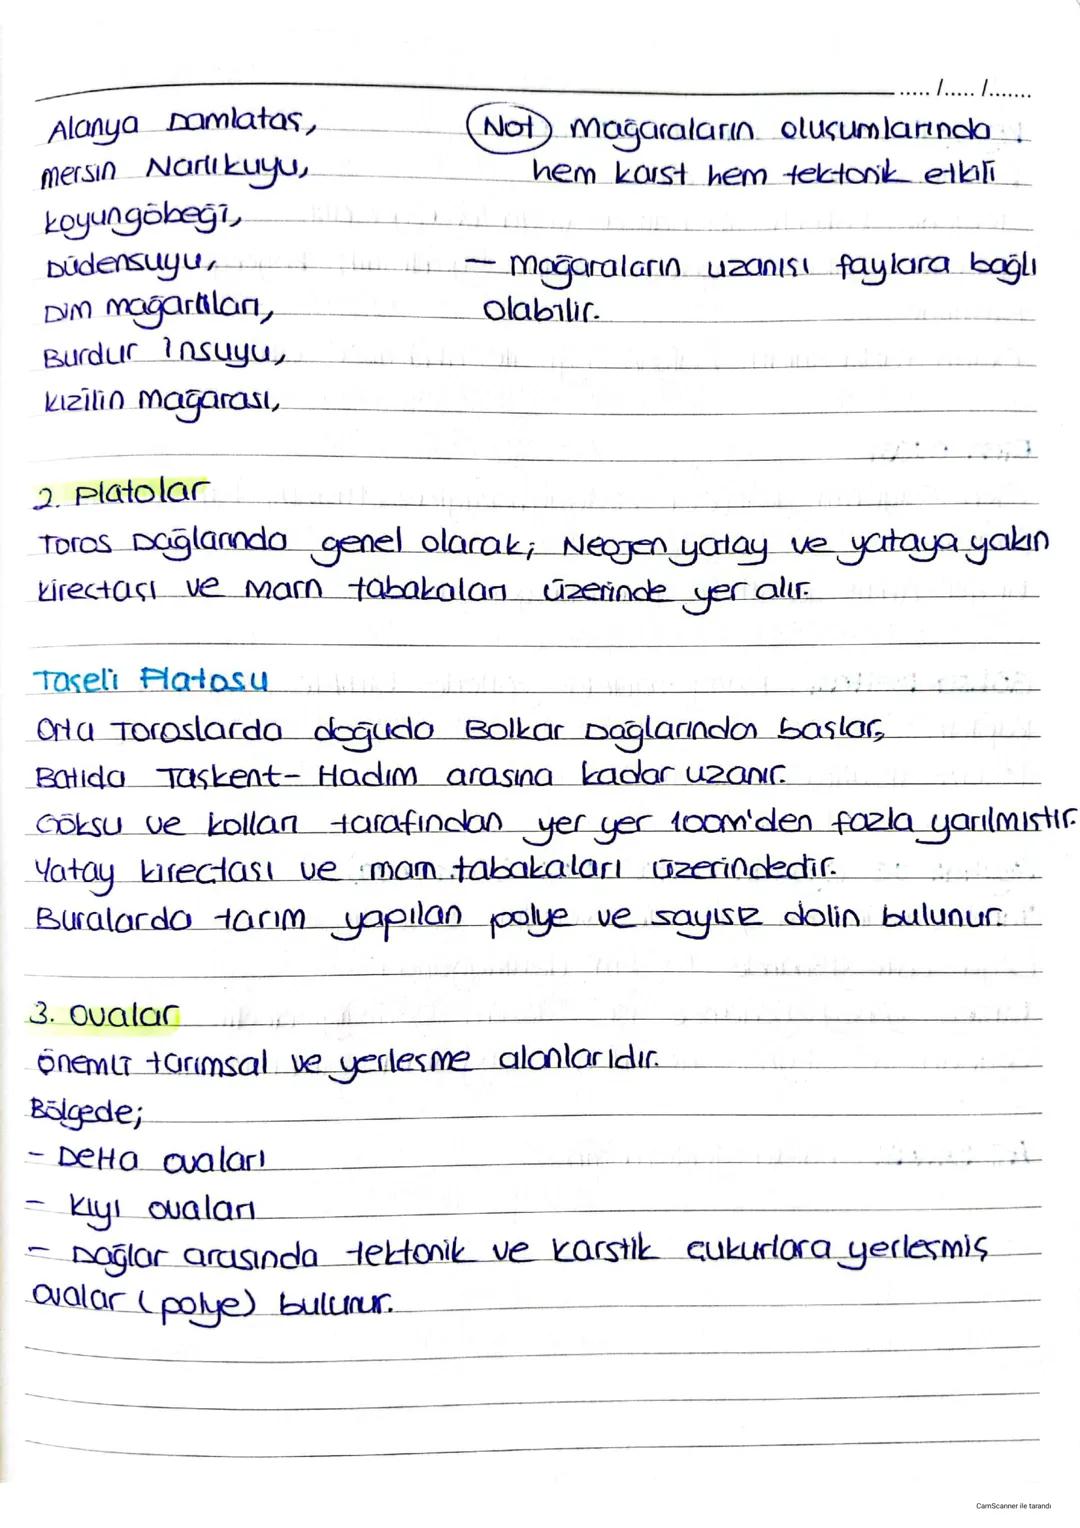 ..... /..... /.......
Alanya Damlataş,
Mersin Narlıkuyu,
Koyungöbeği,
Düdensuyu,
Dim mağaraları,
Burdur İnsuyu,
Kızılin mağarası,
Not Mağaraların oluşumlarında
hem karst hem tektonik etkili
- Mağaraların uzanışı faylara bağlı
olabilir.
2. Platolar
Toros Dağlarında genel olarak; Neojen yatay ve yataya yakın
kireçtaşı ve marn tabakaları üzerinde yer alır.
Taşeli Platosu
Orta Toroslarda doğuda Bolkar Dağlarından başlar,
Batıda Taşkent- Hadım arasına kadar uzanır.
Göksu ve kolları tarafından yer yer 100m'den fazla yarılmıştır.
Yatay kireçtaşı ve marn tabakaları üzerindedir.
Buralarda tarım yapılan polye ve sayısız dolin bulunur.
3. Ovalar
Önemli tarımsal ve yerleşme alanlarıdır.
Bölgede;
- Delta ovaları
- Kıyı ovaları
- Dağlar arasında tektonik ve karstik çukurlara yerleşmiş
ovalar (polye) bulunur.
CamScanner ile tarandı